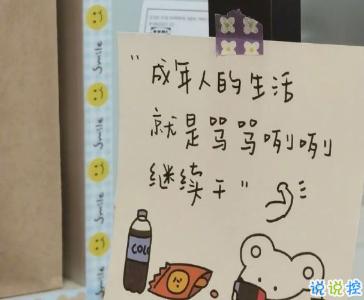 "成年人的生活
就是骂骂咧咧
继续干"
COLA
smile
smile
smile
smile
说说控